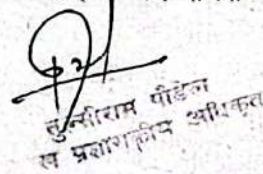 तुलसीराम पौडेल
प्रशासकीय अधिकृत